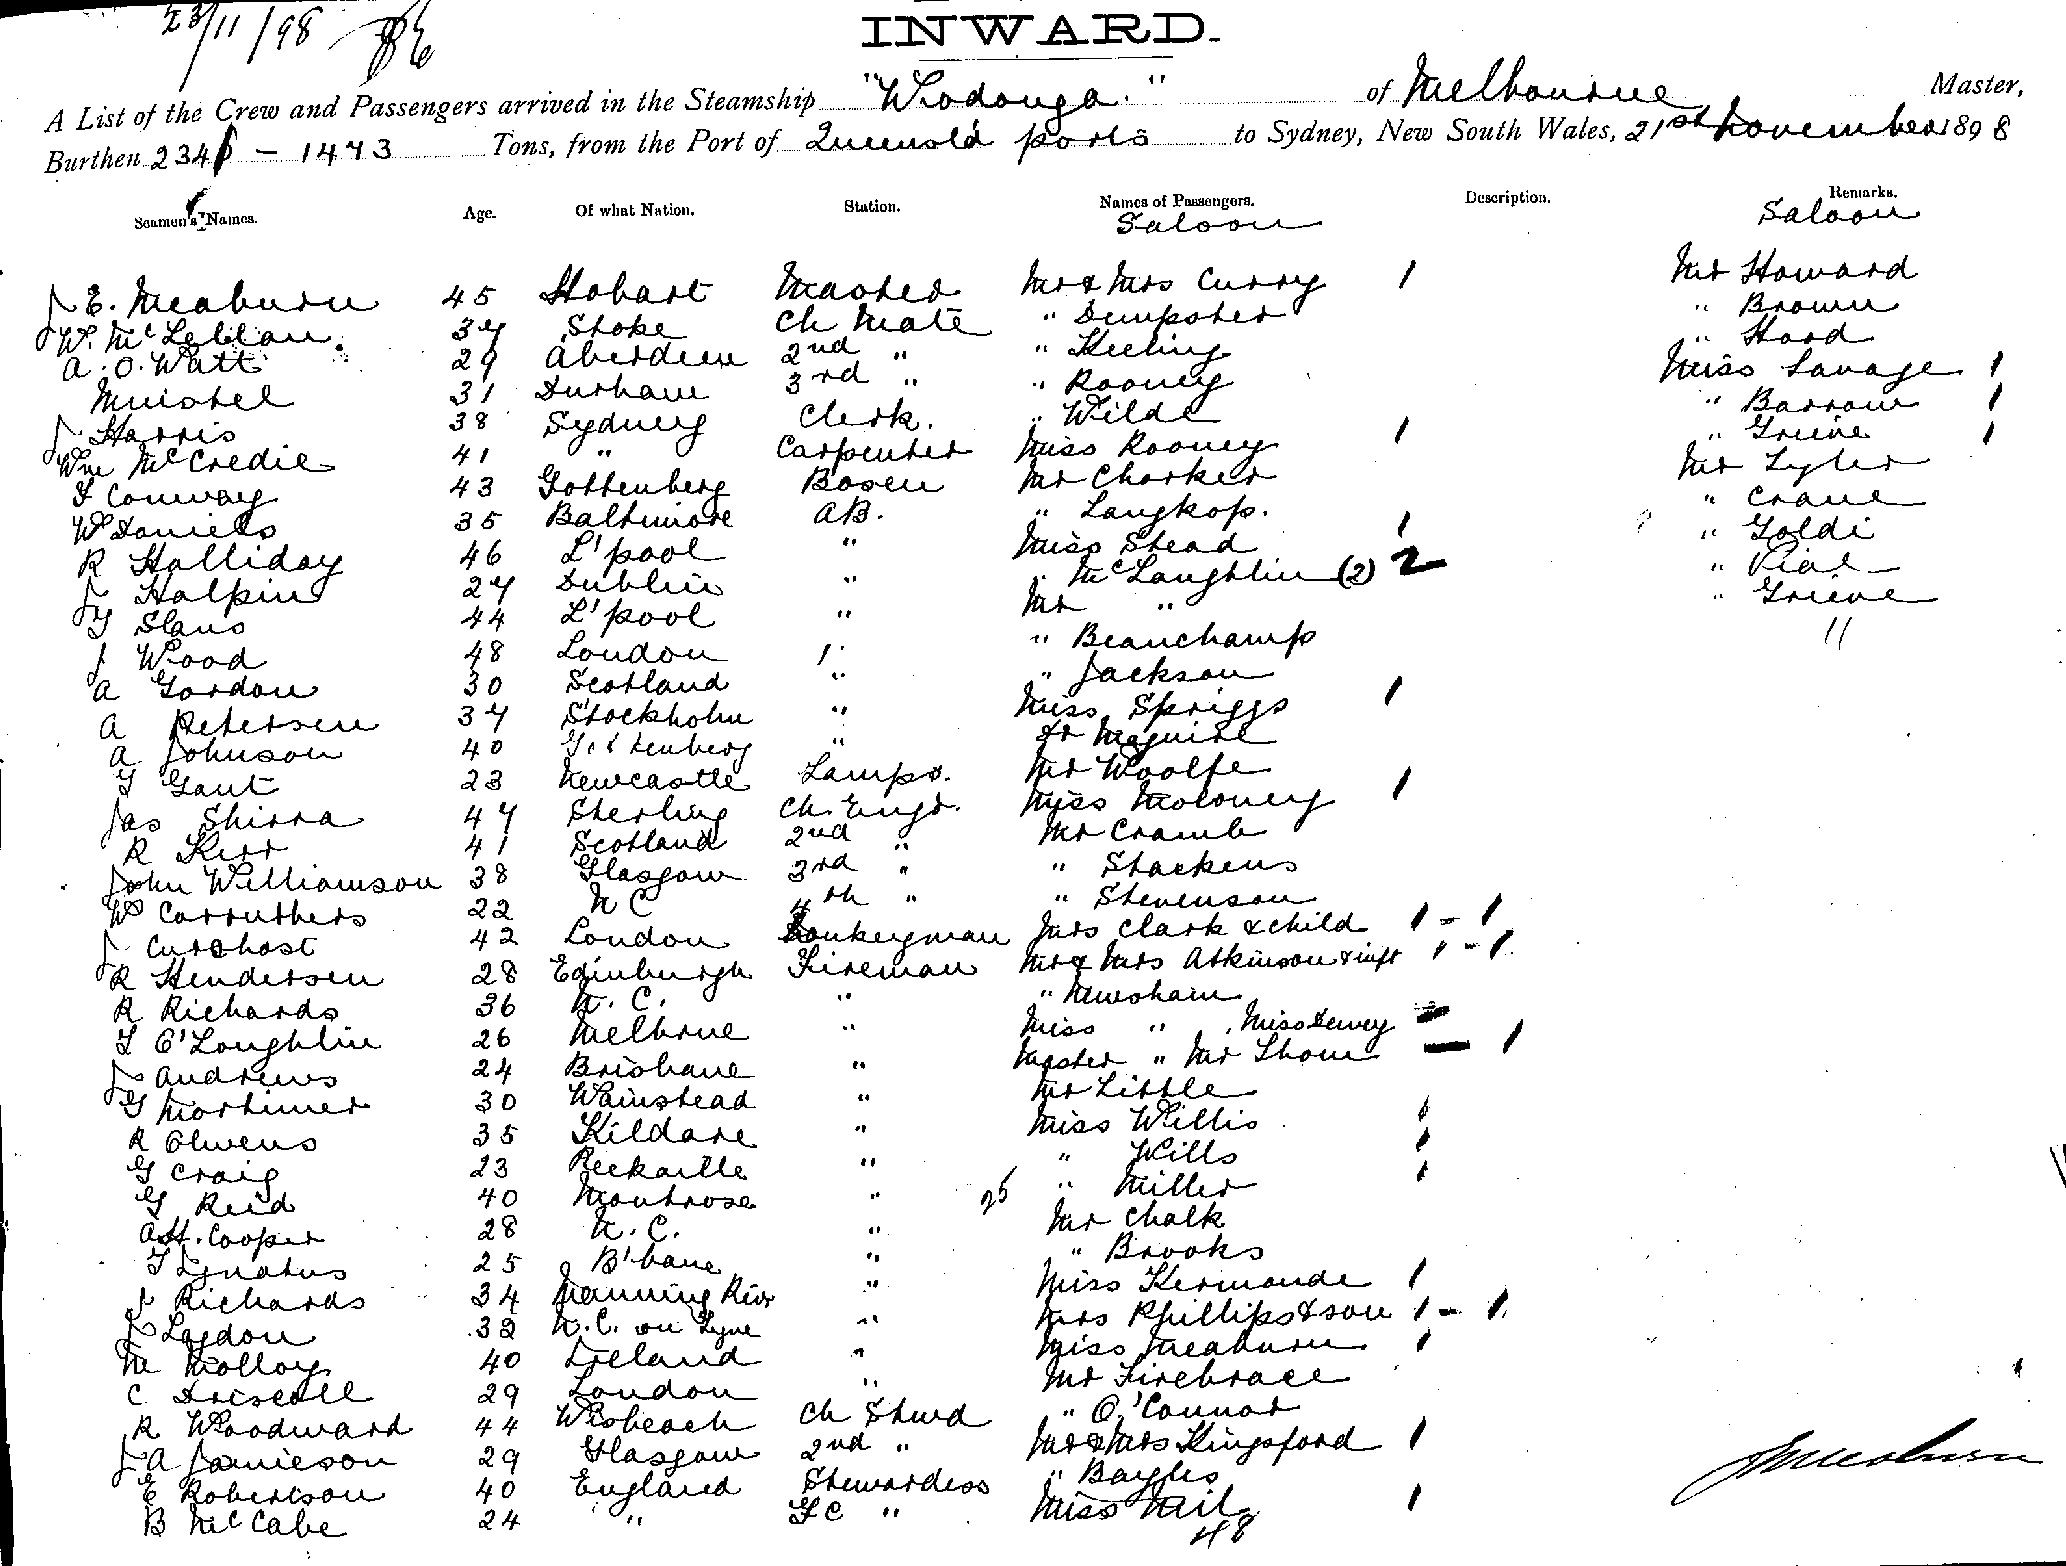 23/11/98
INWARD.
A List of the Crew and Passengers arrived in the Steamship "Wodonga." of Melbourne Master,
Burthen 2341 - 1473 Tons, from the Port of Queensld ports to Sydney, New South Wales, 21st November 1898
Seamen's Names. Age. Of what Nation. Station. Names of Passengers. Description. Remarks.
Saloon Saloon
J E. Meaburn 45 Hobart Master Mr & Mrs Curry 1 Mr Howard
W. McLellan. 37 Stoke Ch Mate " Dempster " Brown
A. O. Watt 29 Aberdeen 2nd " " Keeling " Hord
Muistel 31 Durham 3rd " " Rooney Miss Savage 1
J Harris 38 Sydney Clerk. " Wilde " Barrow 1
Wm McCredie 41 " Carpenter Miss Rooney 1 " Grieve 1
F Conway 43 Gottenberg Bosen Mr Charker Mr Tyler
W Daniels 35 Baltimore AB. " Langkop. " Crane
R Halliday 46 L'pool " Miss Stead 1 " Goldi
J Halpin 27 Dublin " " McLaughlin (2) 2 "
G Slaus 44 L'pool " Mr " " Grieve
J Wood 48 London " " Beauchamp 11
A Gordon 30 Scotland " " Jackson
A Petersen 37 Stockholm " Miss Spriggs 1
A Johnson 40 Gottenberg " Dr Maguire
G Gant 23 Newcastle Lamps. Mr Woolfe
Jas Shirra 47 Sterling Ch Engr. Miss Moloney 1
R Kerr 41 Scotland 2nd " Mr Cramb
John Williamson 38 Glasgow 3rd " " Stackens
W Carruthers 22 N C 4th " " Stevenson
J Curchast 42 London Donkeyman Mrs Clark & child 1 - 1
R Hendersen 28 Edinburgh Fireman Mr & Mrs Atkinson & inft 1 - 1.
R Richards 36 N. C. " " Newsham
T O'Loughlin 26 Melbrne " Miss " , Miss Dewey
J Andrews 24 Brisbane " Master " Mr Thom - 1
G Mortimer 30 Wainstead " Mr Little
R Olwens 35 Kildare " Miss Willis 1
G Craig 23 " " Wills 1
G Reid 40 Montrose " 25 " Miller 1
A H. Cooper 28 N. C. " Mr Chalk
T Ignatus 25 B'bane " " Brooks
J Richards 34 Manning Rivr " Miss Kermonde 1
J Laydon 32 N. C. on Tyne " Mrs Phillips & son 1 - 1
M Molloy 40 Ireland " Miss Meaburn 1
C Driscoll 29 London " Mr Firebrace
R Woodward 44 Wisbeach Ch Stwd " O'Connor
J A Jamieson 29 Glasgow 2nd " Mr & Mrs Kingsford 1
E Robertson 40 England Stewardess " Bayles
B McCabe 24 " F C " Miss Neil 1
48
J Meaburn